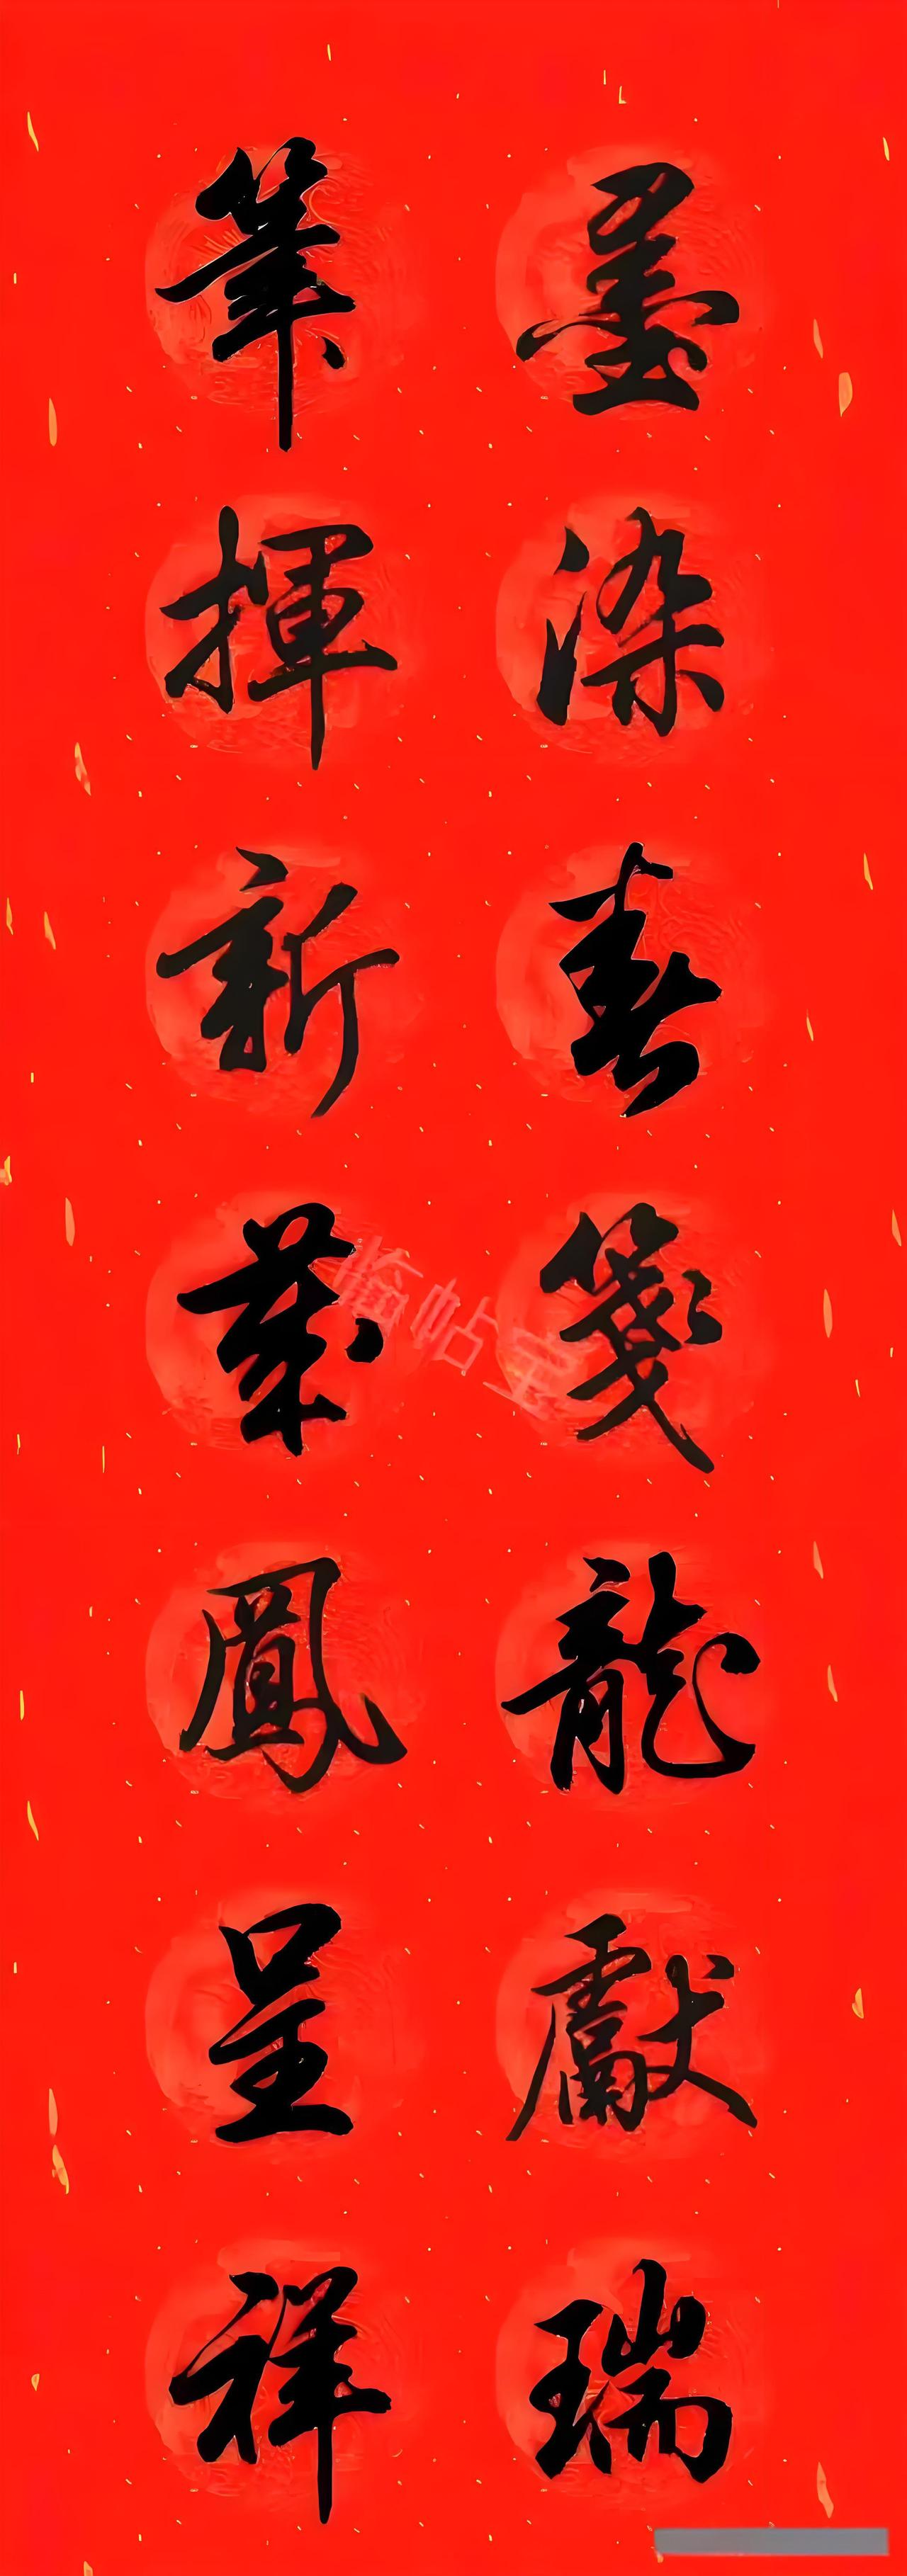 墨染春箋龍獻瑞
筆揮新葉鳳呈祥
臨帖宝